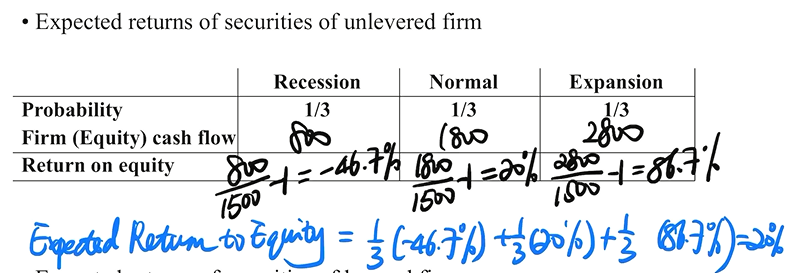 • Expected returns of securities of unlevered firm
Recession Normal Expansion
Probability 1/3 1/3 1/3
Firm (Equity) cash flow 800 1800 2800
Return on equity 800/1500 -1 = -46.7% 1800/1500 -1 = 20% 2800/1500 -1 = 86.7%
Expected Return to Equity = 1/3 (-46.7%) + 1/3 (20%) + 1/3 (86.7%) = 20%